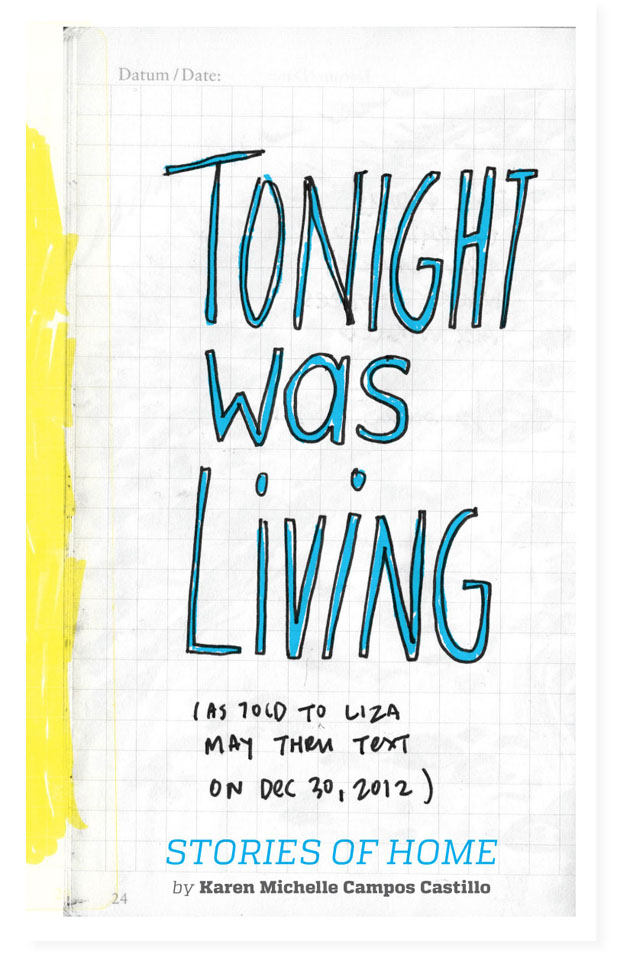 Datum / Date:
TONIGHT
was
LiViNG
(AS TOLD TO LIZA
MAY THRU TexT
ON Dec 30, 2012)
STORIES OF HOME
by Karen Michelle Campos Castillo
24